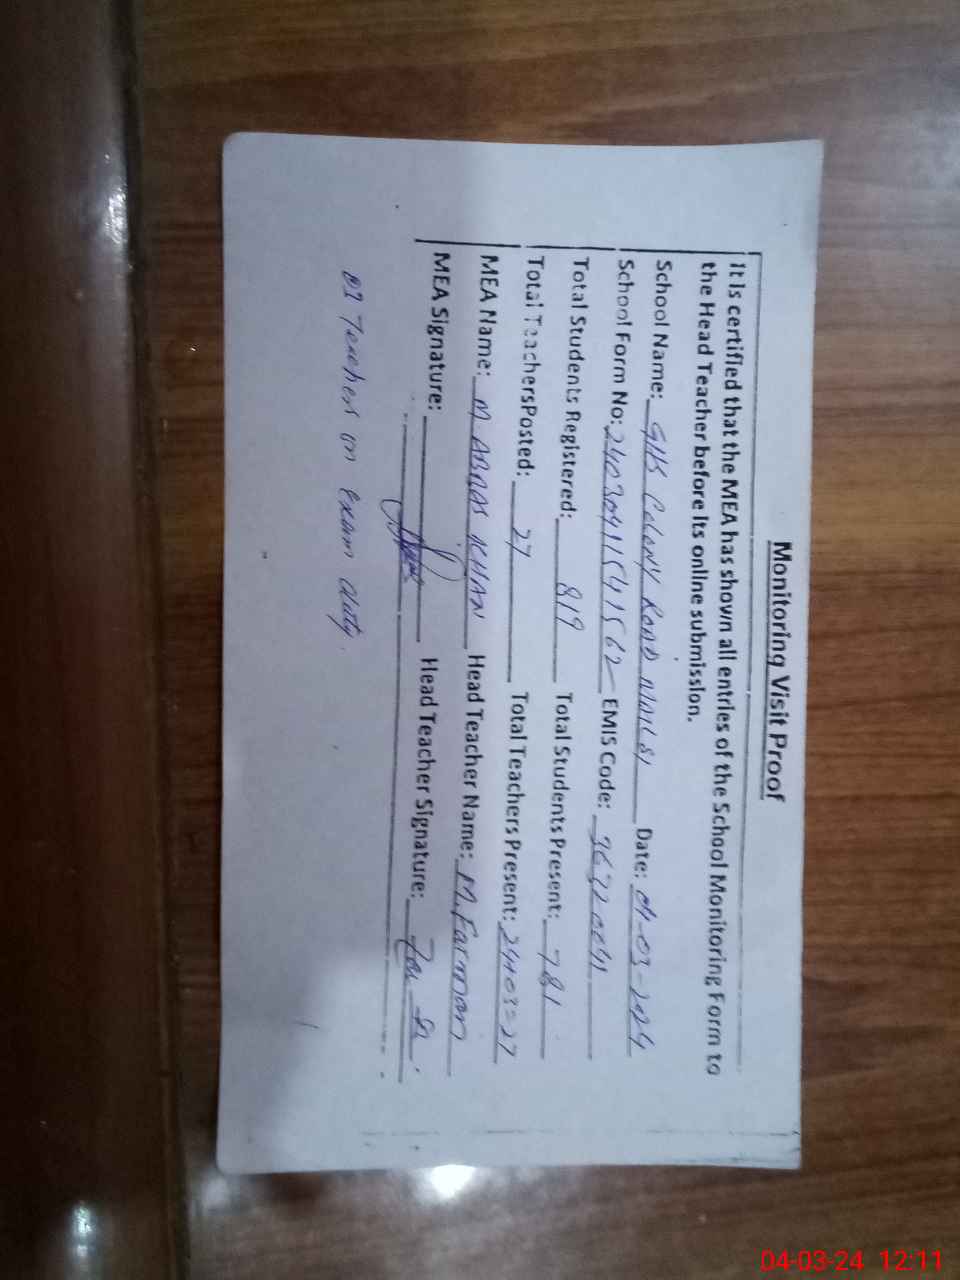 Monitoring Visit Proof
It is certified that the MEA has shown all entries of the School Monitoring Form to
the Head Teacher before its online submission.
School Name: GHS Colony Road Mail(S) Date: 04-03-2024
School Form No: EMIS Code:
Total Students Registered: 819 Total Students Present: 781
Total Teachers Posted: 27 Total Teachers Present: 24+03=27
MEA Name: M. ABBAS KHAN Head Teacher Name: M. Farman
MEA Signature: Head Teacher Signature:
Teacher on exam duty.
04-03-24 12:11